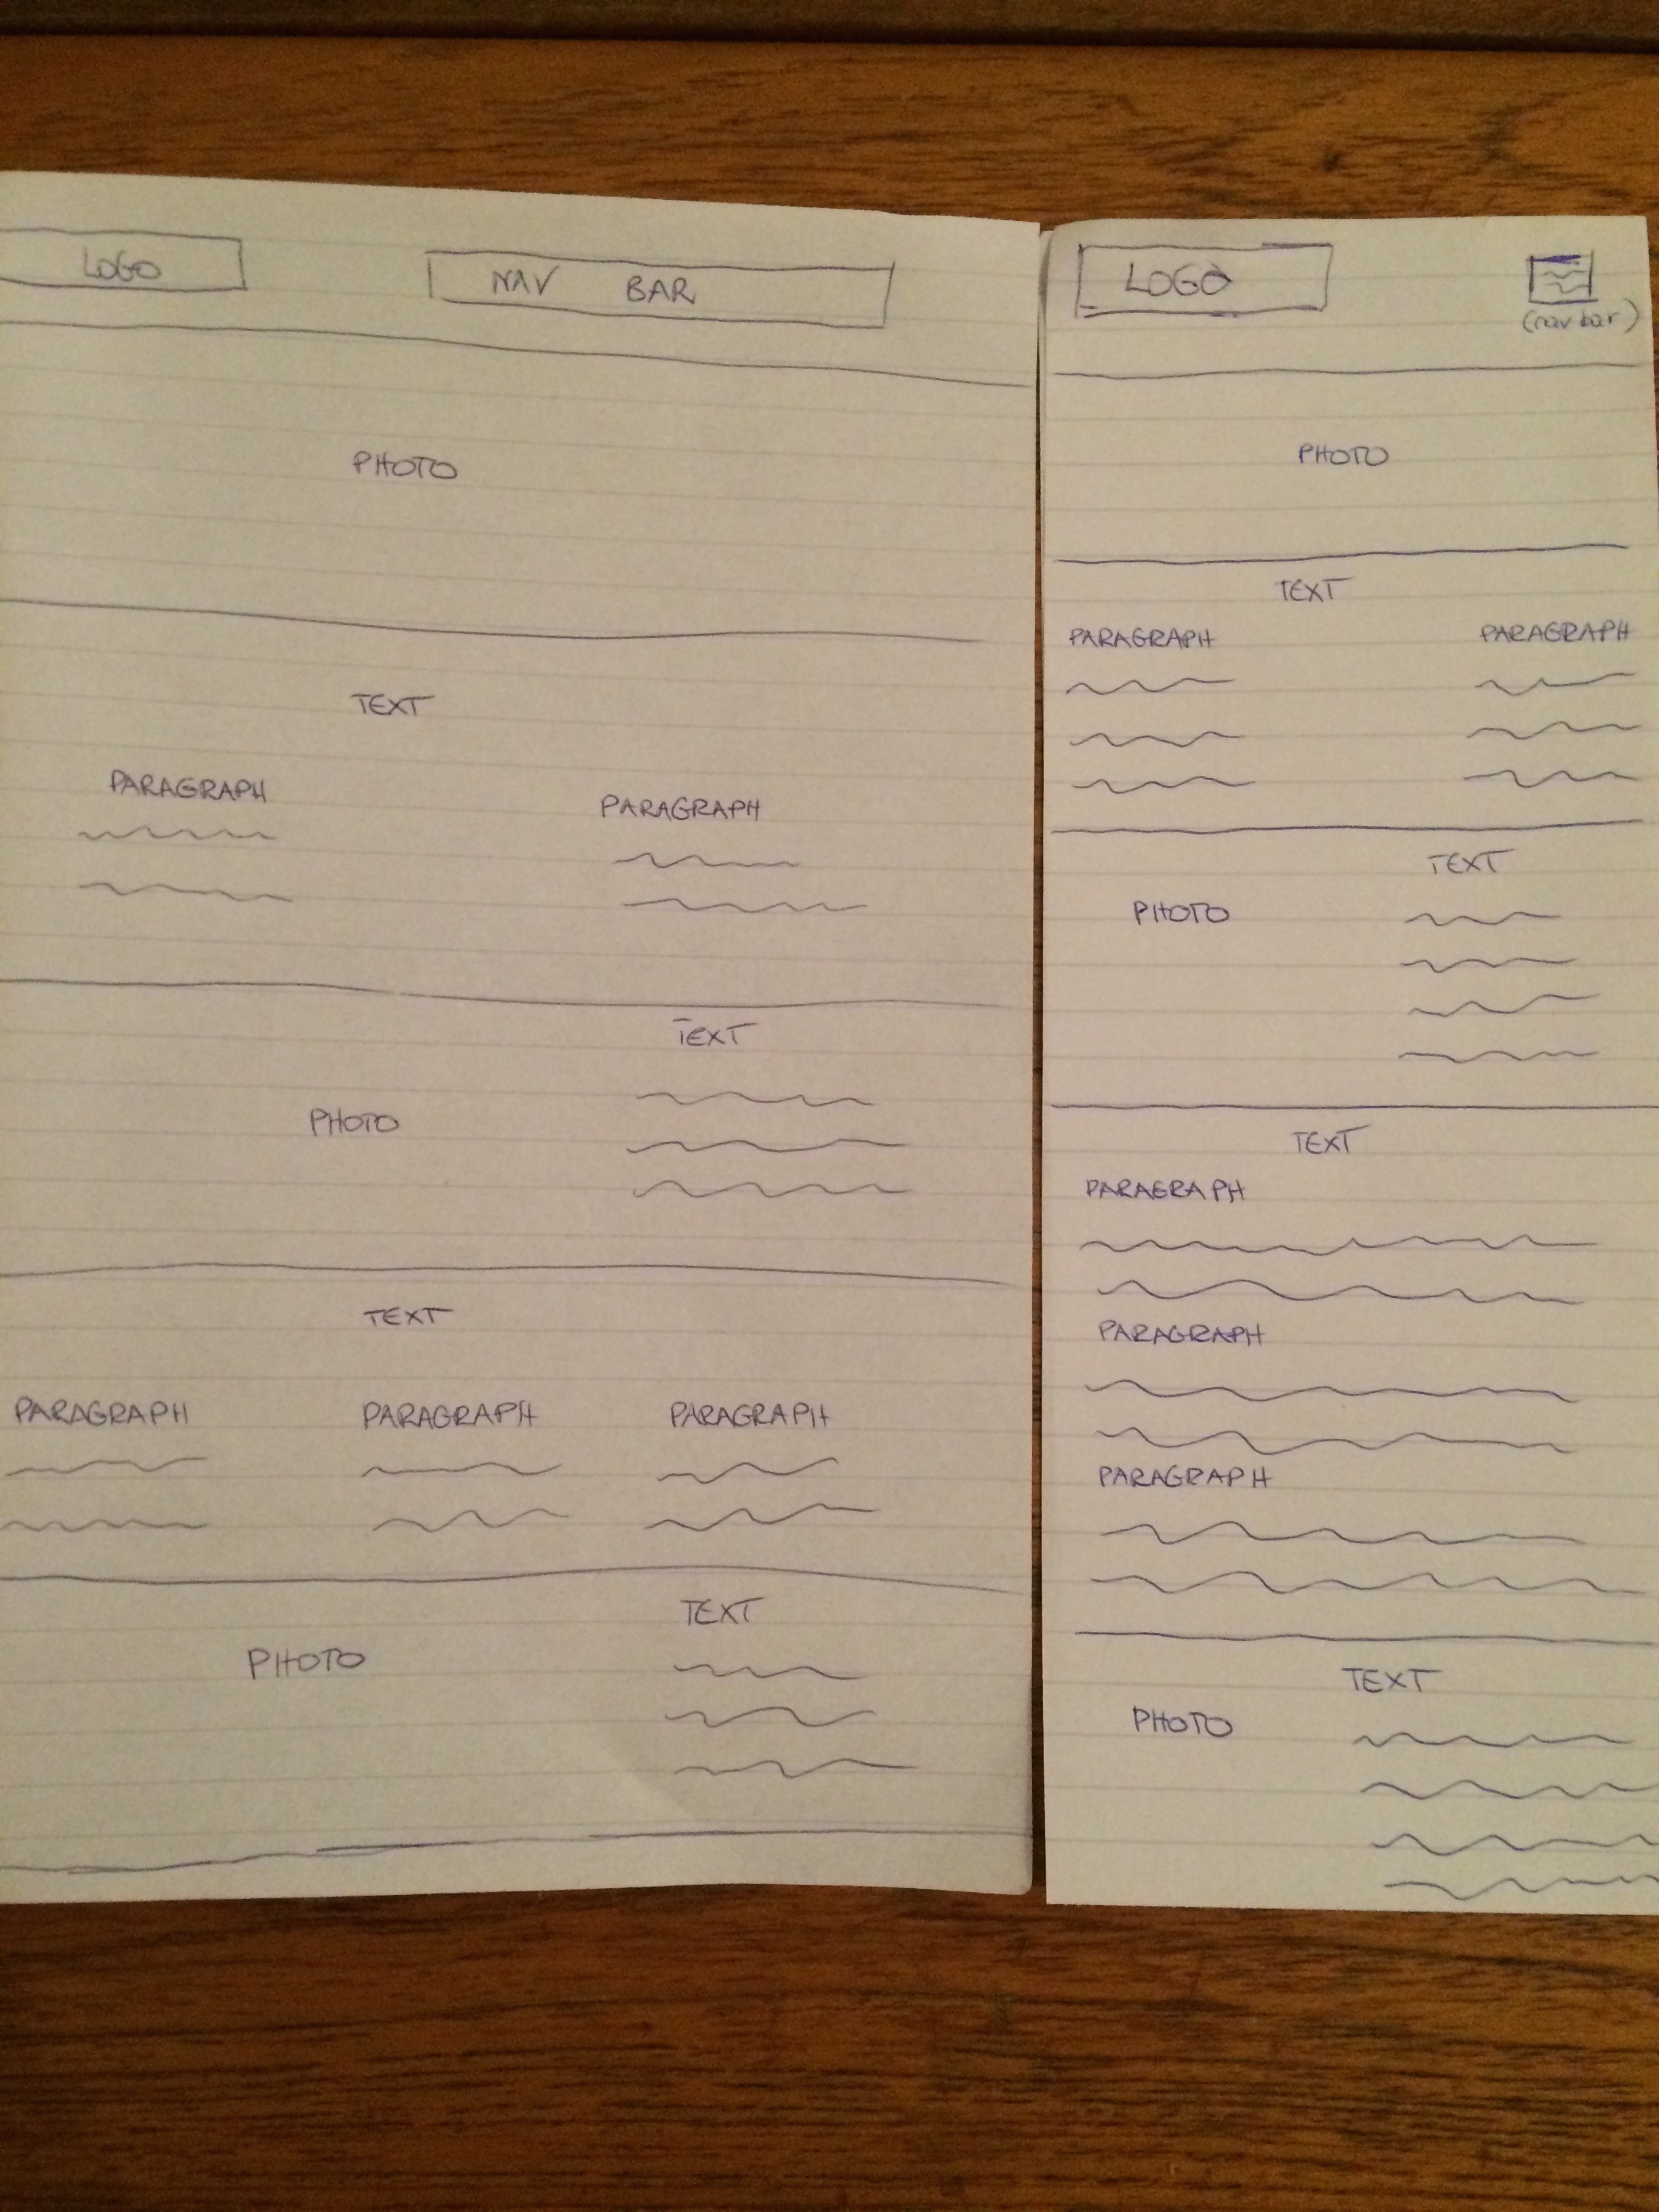 LOGO
NAV BAR
PHOTO
TEXT
PARAGRAPH PARAGRAPH
TEXT
PHOTO
TEXT
PARAGRAPH PARAGRAPH PARAGRAPH
TEXT
PHOTO
LOGO
(nav bar)
PHOTO
TEXT
PARAGRAPH PARAGRAPH
TEXT
PHOTO
TEXT
PARAGRAPH
PARAGRAPH
PARAGRAPH
TEXT
PHOTO